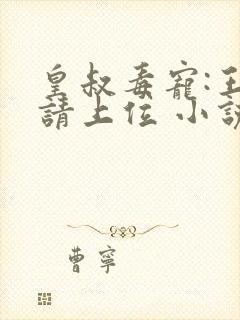 皇叔毒寵:王
請上位 小說
曹寧